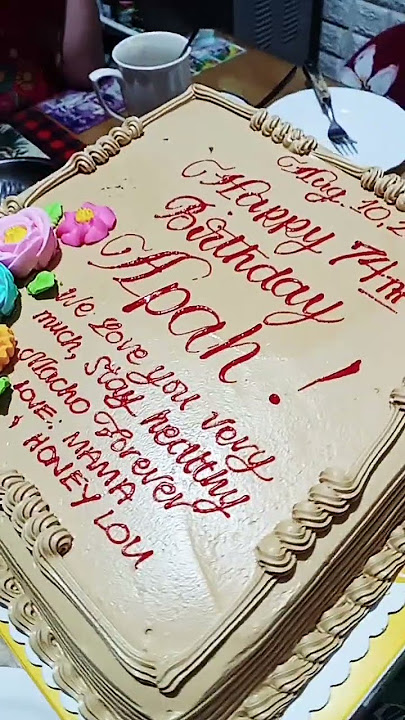 Aug. 10, 2
Happy 74th
Birthday
Apah!
We Love you very
much, Stay healthy
Macho Forever
LOVE: MAMA
& HONEY LOU